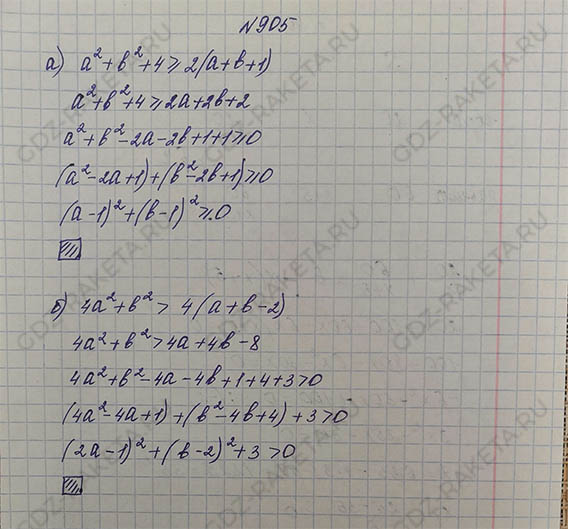 №905
а) a² + b² + 4 ≥ 2(a + b + 1)
a² + b² + 4 ≥ 2a + 2b + 2
a² + b² - 2a - 2b + 1 + 1 ≥ 0
(a² - 2a + 1) + (b² - 2b + 1) ≥ 0
(a - 1)² + (b - 1)² ≥ 0
б) 4a² + b² > 4(a + b - 2)
4a² + b² > 4a + 4b - 8
4a² + b² - 4a - 4b + 1 + 4 + 3 > 0
(4a² - 4a + 1) + (b² - 4b + 4) + 3 > 0
(2a - 1)² + (b - 2)² + 3 > 0
GDZ-RAKETA.RU
GDZ-RAKETA.RU
GDZ-RAKETA.RU
GDZ-RAKETA.RU
GDZ-RAKETA.RU
GDZ-RAKETA.RU